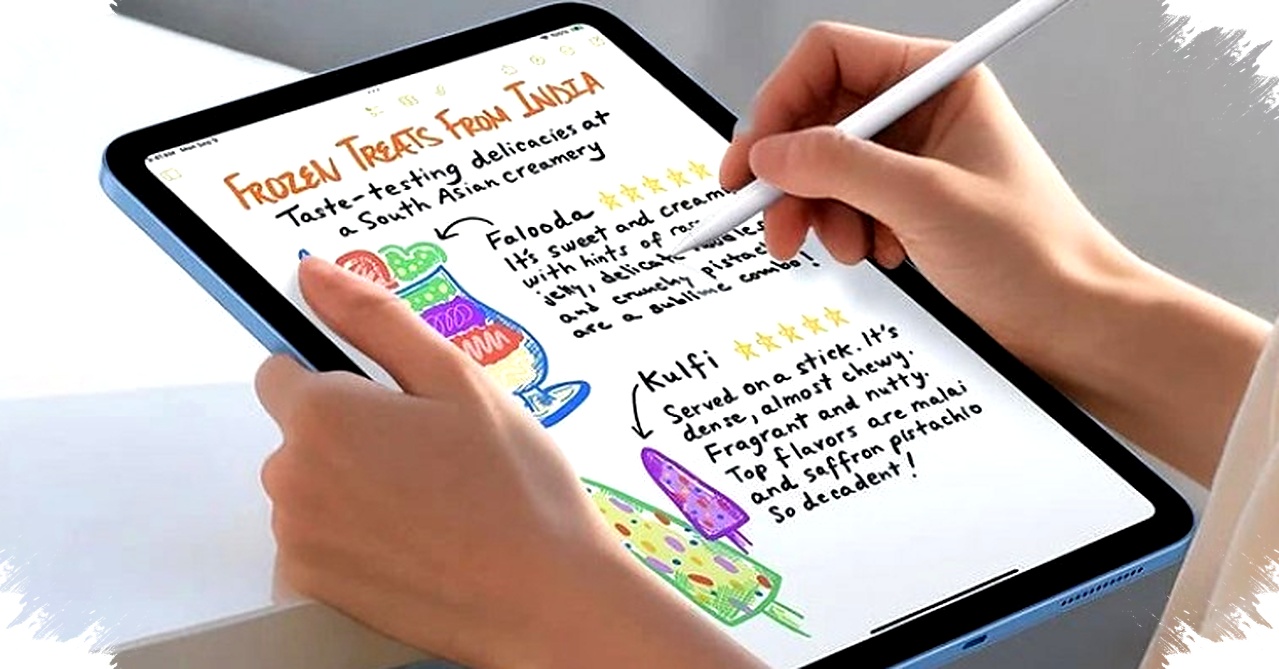 Mon Sep 9
FROZEN TREATS FROM INDIA
Taste-testing delicacies at
a South Asian creamery
Falooda
It's sweet and
with hints of
jelly, delicate
and crunchy
are a sublime combo!
Kulfi
Served on a stick. It's
dense, almost chewy.
Fragrant and nutty.
Top flavors are malai
and saffron pistachio
So decadent!